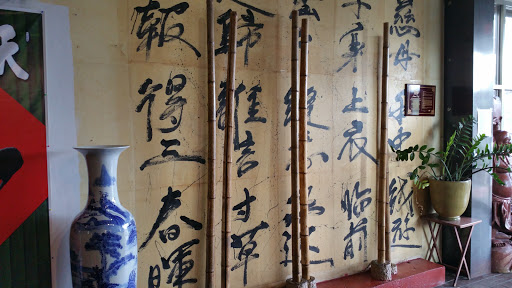 慈母手中線游
子身上衣臨前
縫意恐遲
歸誰言寸草
報得三春暉